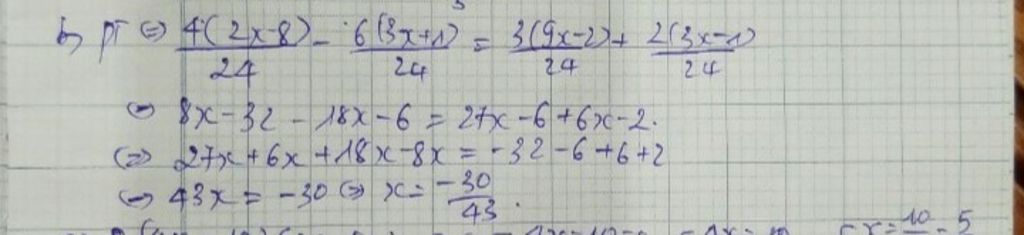 b, PT ⇔ 4(2x-8)/24 - 6(3x+1)/24 = 3(9x-2)/24 + 2(3x-1)/24
⇔ 8x-32 - 18x-6 = 27x-6+6x-2.
⇔ 27x+6x+18x-8x = -32-6+6+2
⇔ 43x = -30 ⇔ x = -30/43.